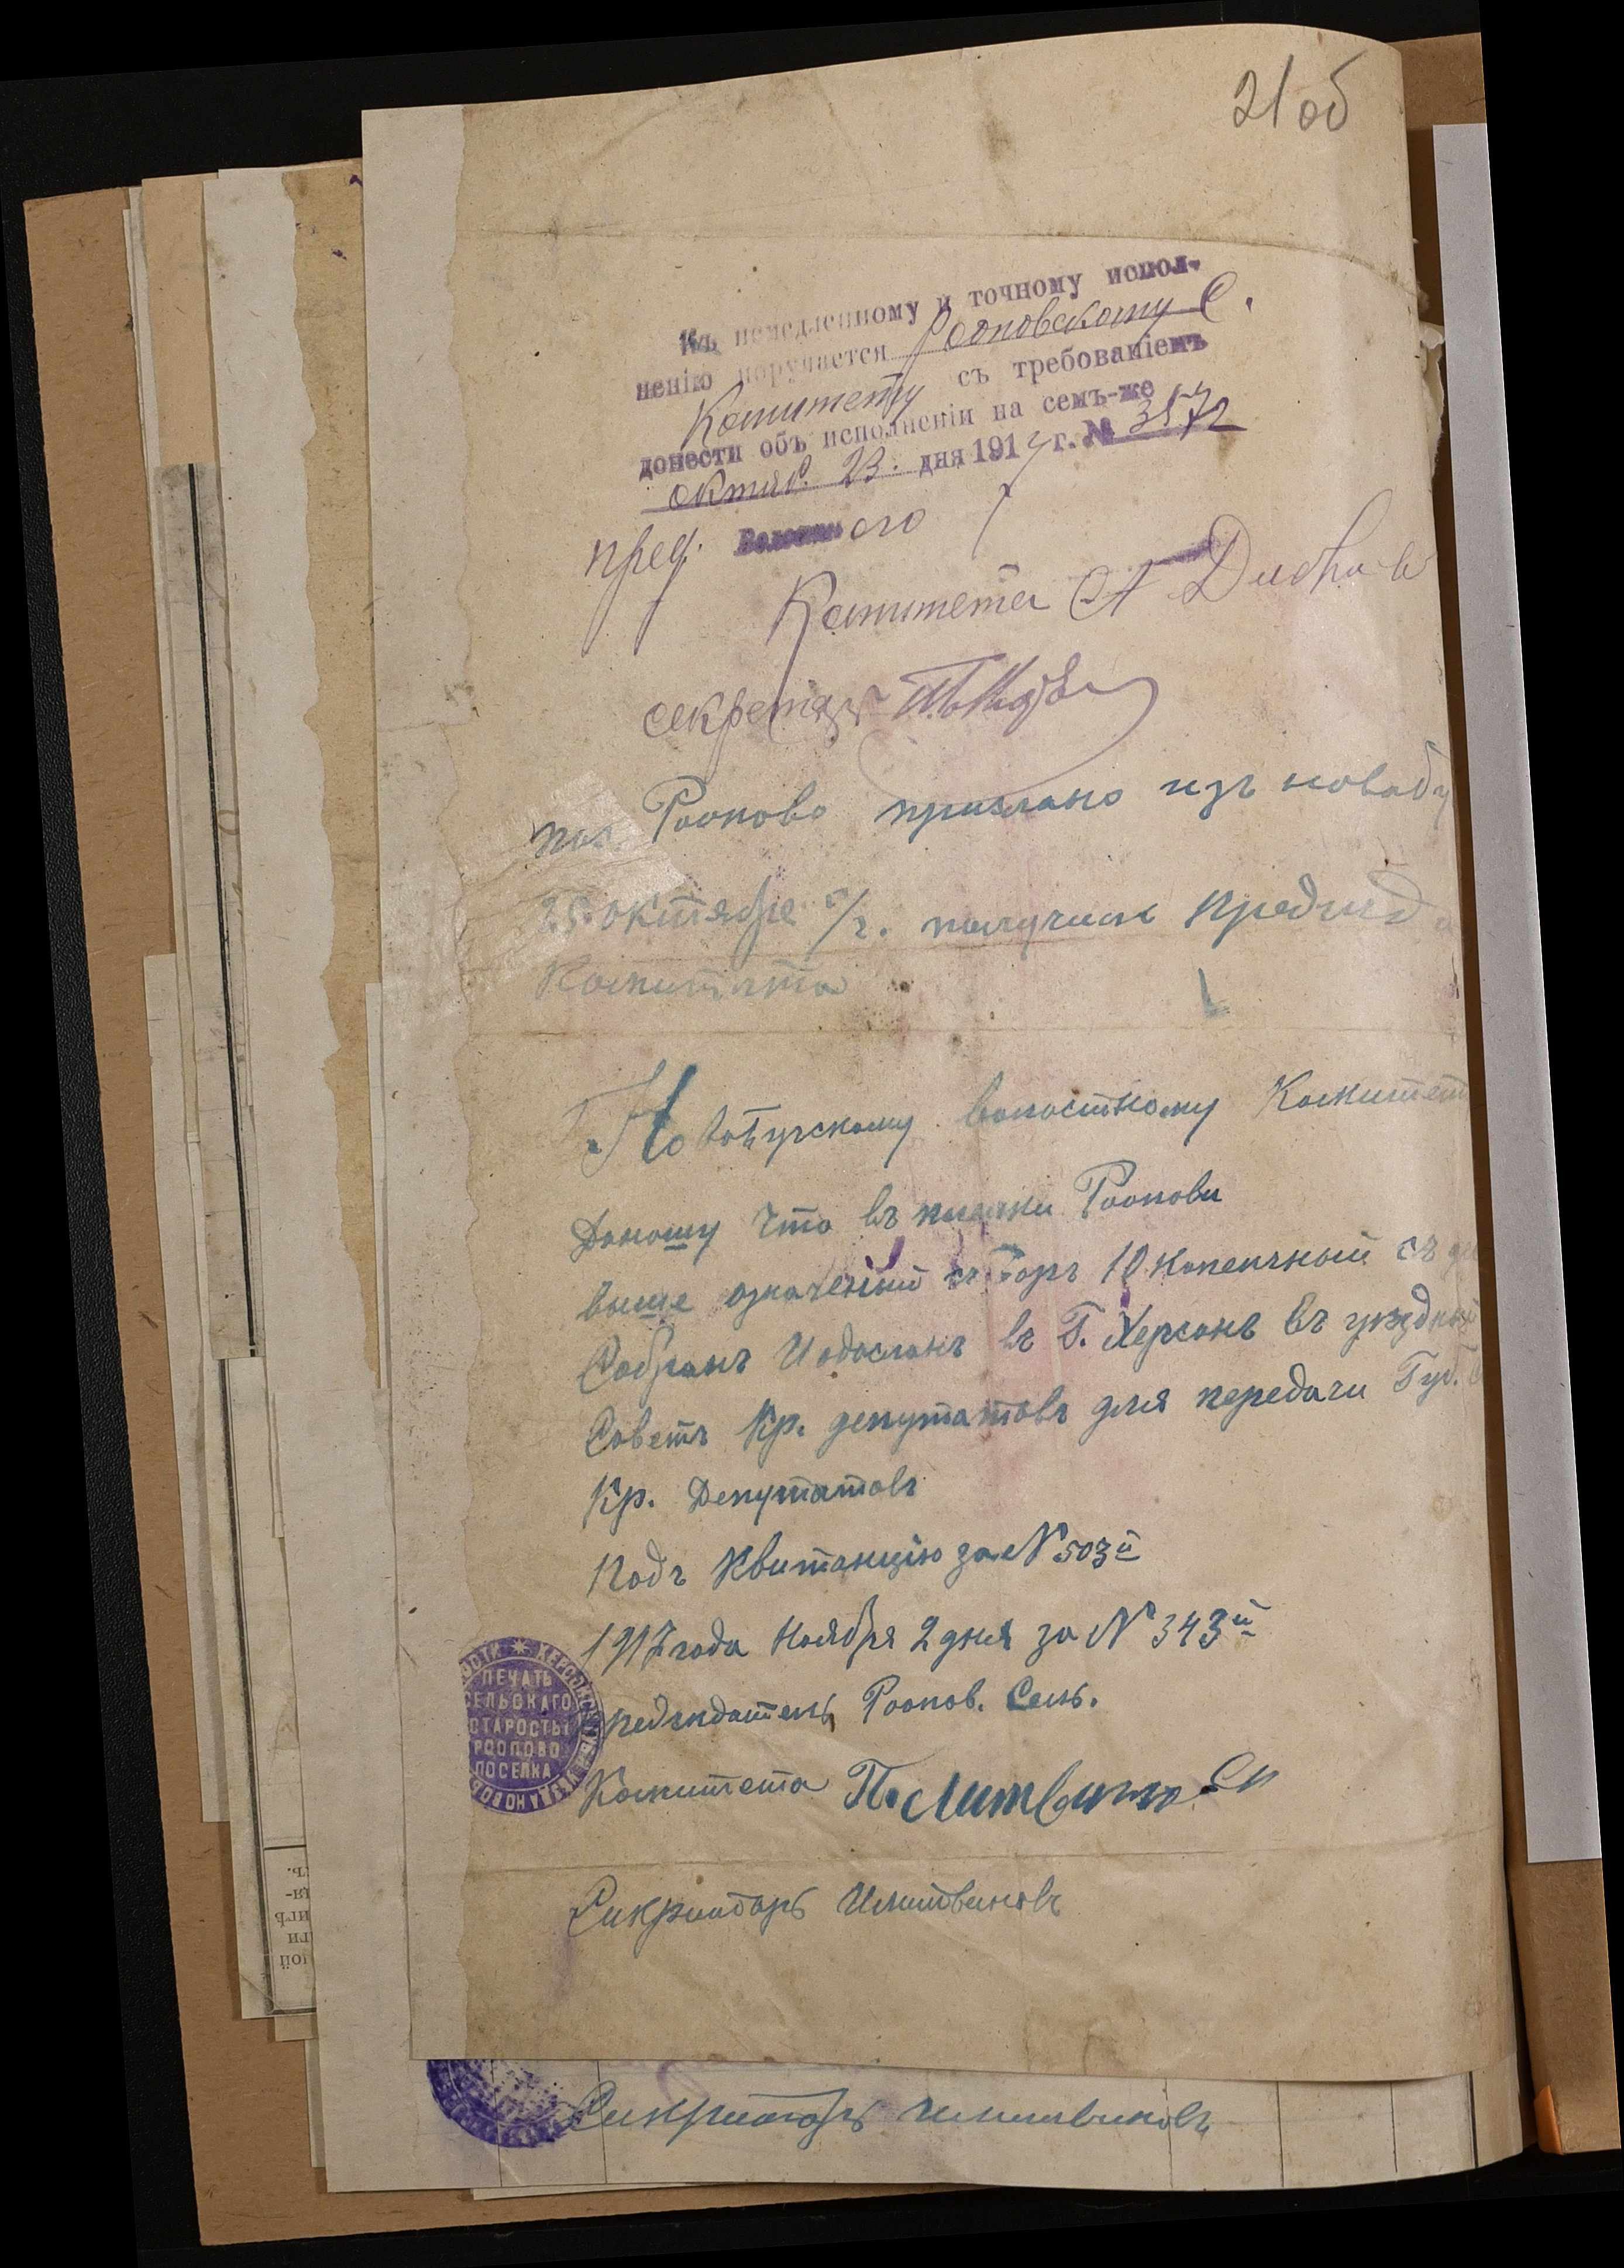 21 об
Къ немедленному и точному испол-
ненію поручается Рооповскому С.
Комитету съ требованіемъ
донести объ исполненіи на семъ-же
октяб. 23. дня 1917 г. № 3572
пред. Волостного
Комитета А
секретарь
Роопово прислано изъ новабу
25 октября с/г. получилъ предсид
Комитета
Новобугскому волостному Комитет
Доношу Что въ поселки Роопови
выше означеный сборъ 10 копечный съ
Собранъ И одосланъ въ Г. Херсонъ въ уездный
Советъ Кр. депутатовъ для передачи Губ. С
Кр. Депутатовъ
Подъ Квитанцію за № 503й
1917 года Ноября 2 дня за № 343й
предсидатель Роопов. Сель.
Комитета П. Литвинов
Сикритарь Илитвиновъ
ПЕЧАТЬ
СЕЛЬСКАГО
СТАРОСТЫ
РООПОВО
ПОСЕЛКА
Сикритарь Илитвиновъ